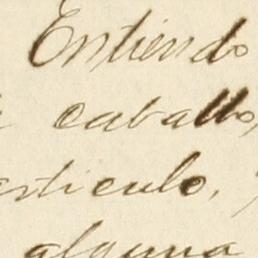 Entiendo
caballo,
articulo,
alguna